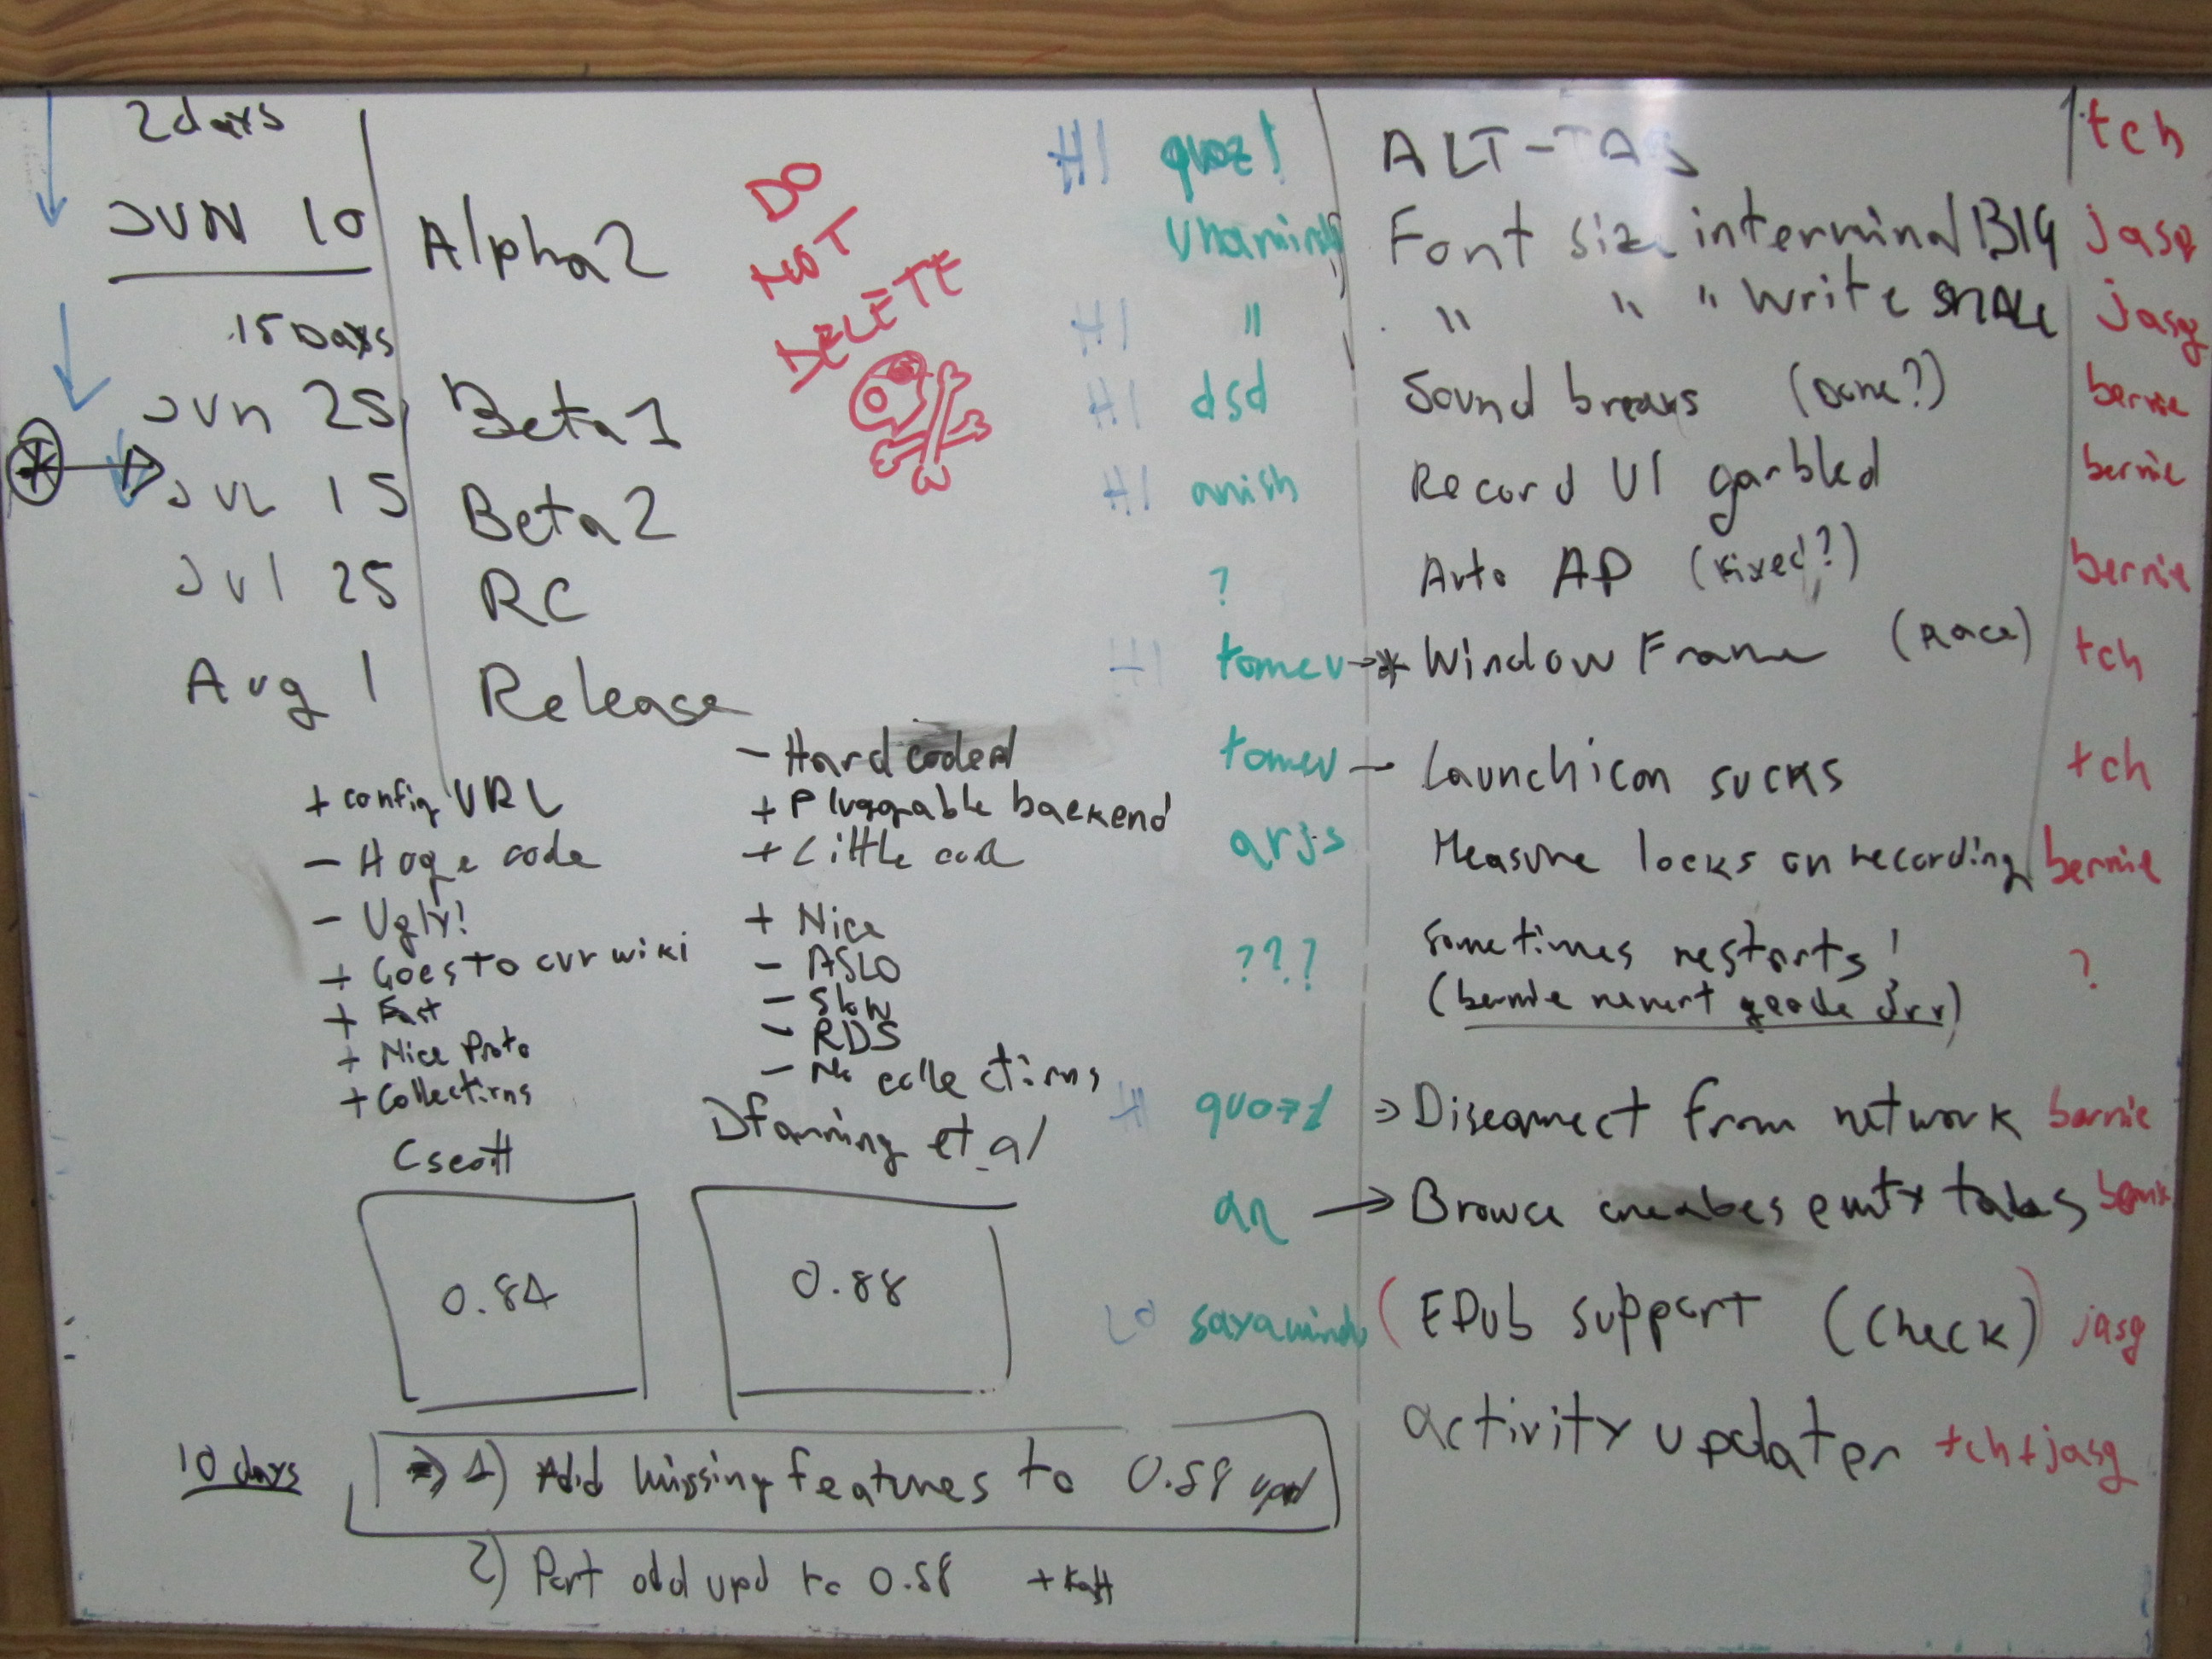 2 days
JUN 10 Alpha2
15 Days
Jun 25 Beta1
JUL 15 Beta2
Jul 25 RC
Aug 1 Release
DO
NOT
DELETE
+ config URL
- Huge code
- Ugly!
+ Goes to our wiki
+ Fast
+ Nice Proto
+ Collections
Cscott
- Hard coded
+ Pluggable backend
+ Little code
+ Nice
- ASLO
- Slow
- RDS
- No collections
Dfarning et al
0.84
0.88
10 days
1) Add missing features to 0.88 upd
2) Port old upd to 0.88
HI quozl ALT-TAB tch
Font size in terminal BIG jasg
HI " " " " Write SMALL jasg
HI dsd Sound breaks (Done?) bernie
HI anish Record UI garbled bernie
? Auto AP (Fixed?) bernie
HI tomeu → * Window Frame (Race) tch
tomeu - Launch icon sucks tch
arjs Measure locks on recording bernie
??? Sometimes restarts! ?
(bernie revert geode drv)
quozl → Disconnect from network bernie
→ Browse creates emty tabs bernie
LO sayamindu (EPub support (Check) jasg
activity updater tch + jasg